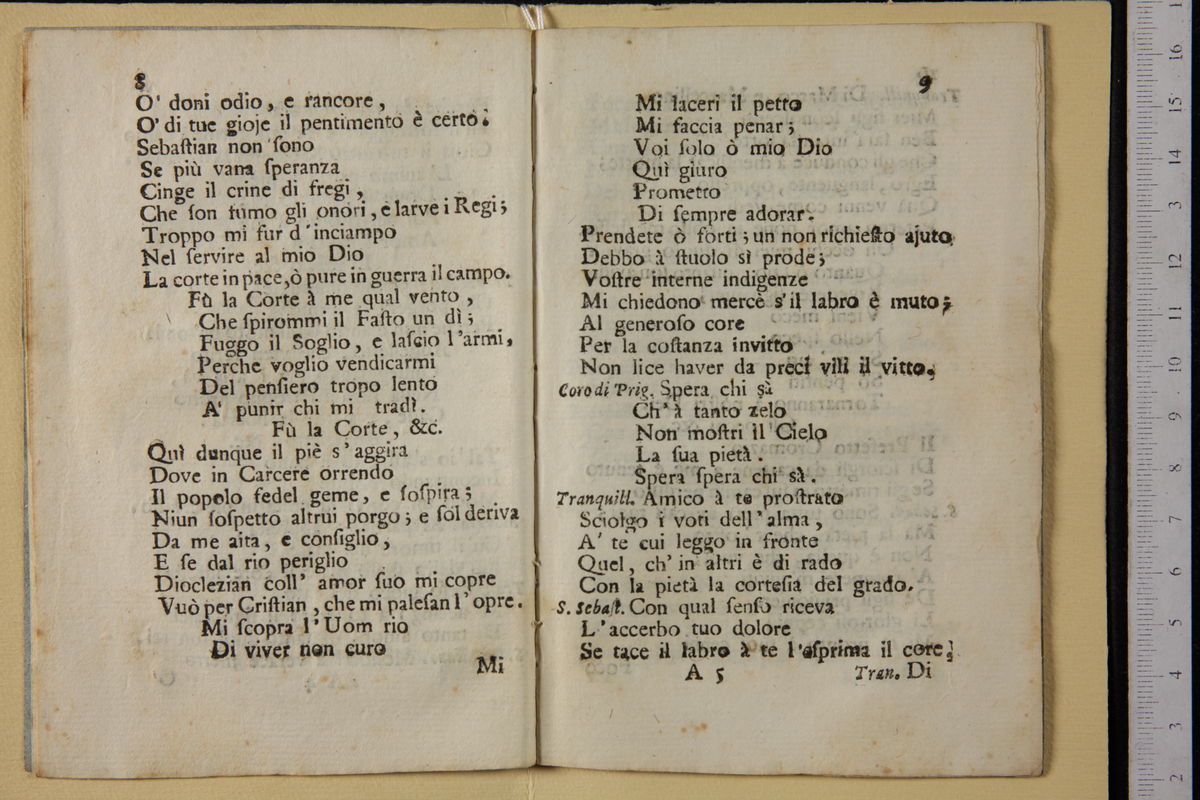 8
O' doni odio, e rancore,
O' di tue gioje il pentimento è certo.
Sebaſtian non ſono
Se più vana ſperanza
Cinge il crine di fregi,
Che ſon fumo gli onori, e larve i Regi;
Troppo mi fur d'inciampo
Nel ſervire al mio Dio
La corte in pace, ò pure in guerra il campo.
Fù la Corte à me qual vento,
Che ſpirommi il Faſto un dì;
Fuggo il Soglio, e laſcio l'armi,
Perche voglio vendicarmi
Del penſiero tropo lento
A' punir chi mi tradì.
Fù la Corte, &c.
Quì dunque il piè s'aggira
Dove in Carcere orrendo
Il popolo fedel geme, e ſoſpira;
Niun ſoſpetto altrui porgo; e ſol deriva
Da me aita, e conſiglio,
E ſe dal rio periglio
Dioclezian coll' amor ſuo mi copre
Vuò per Criſtian, che mi paleſan l'opre.
Mi ſcopra l'Uom rio
Di viver non curo
Mi
9
Mi laceri il petto
Mi faccia penar;
Voi ſolo ò mio Dio
Quì giuro
Prometto
Di ſempre adorar.
Prendete ò forti; un non richieſto ajuto,
Debbo à ſtuolo sì prode;
Voſtre interne indigenze
Mi chiedono mercè s'il labro è muto;
Al generoſo core
Per la coſtanza invitto
Non lice haver da preci vili il vitto.
Coro di Prig. Spera chi sà
Ch' à tanto zelo
Non moſtri il Cielo
La ſua pietà.
Spera ſpera chi sà.
Tranquill. Amico à te proſtrato
Sciolgo i voti dell'alma,
A' te cui leggo in fronte
Quel, ch' in altri è di rado
Con la pietà la corteſia del grado.
S. Sebaſt. Con qual ſenſo riceva
L'accerbo tuo dolore
Se tace il labro à te l'eſprima il core.
A 5
Tran. Di